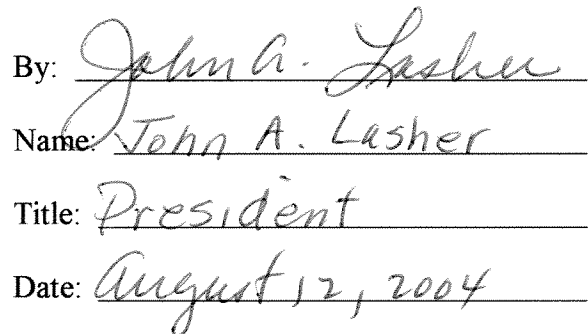 By: John A. Lasher
Name: John A. Lasher
Title: President
Date: August 12, 2004